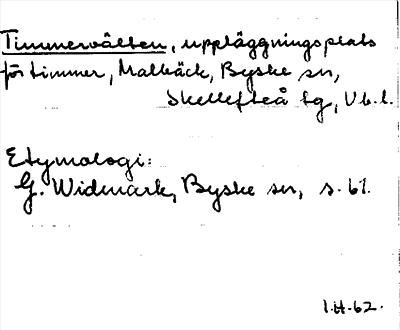 Timmervälten, uppläggningsplats
för timmer, Malbäck, Byske sn,
Skellefteå tg, Vb.l.
Etymologi:
G. Widmark, Byske sn, s. 61.
1.H.62.